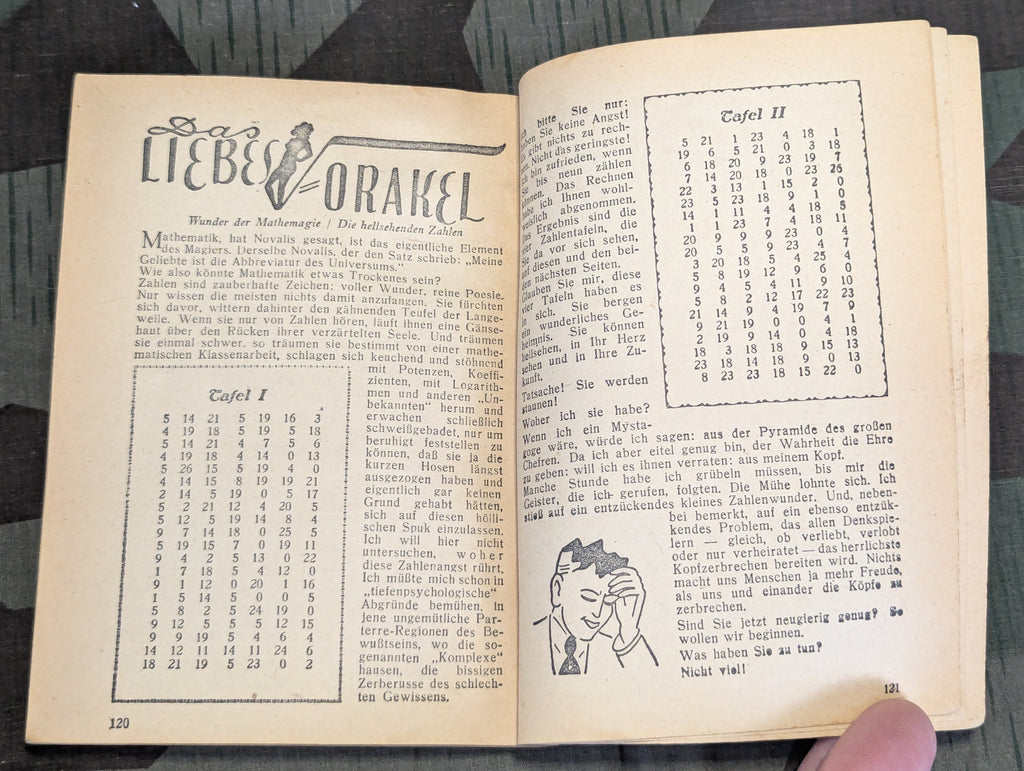 Das
LIEBES-ORAKEL
Wunder der Mathemagie / Die hellsehenden Zahlen
Mathematik, hat Novalis gesagt, ist das eigentliche Element
des Magiers. Derselbe Novalis, der den Satz schrieb: „Meine
Geliebte ist die Abbreviatur des Universums.“
Wie also könnte Mathematik etwas Trockenes sein?
Zahlen sind zauberhafte Zeichen: voller Wunder, reine Poesie.
Nur wissen die meisten nichts damit anzufangen. Sie fürchten
sich davor, wittern dahinter den gähnenden Teufel der Lange-
weile. Wenn sie nur von Zahlen hören, läuft ihnen eine Gänse-
haut über den Rücken ihrer verzärtelten Seele. Und träumen
sie einmal schwer, so träumen sie bestimmt von einer mathe-
matischen Klassenarbeit, schlagen sich keuchend und stöhnend
mit Potenzen, Koeffi-
zienten, mit Logarith-
men und anderen „Un-
bekannten“ herum und
erwachen schließlich
schweißgebadet, nur um
beruhigt feststellen zu
können, daß sie ja die
kurzen Hosen längst
ausgezogen haben und
eigentlich gar keinen
Grund gehabt hätten,
sich auf diesen hölli-
schen Spuk einzulassen.
Ich will hier nicht
untersuchen, woher
diese Zahlenangst rührt.
Ich müßte mich schon in
„tiefenpsychologische“
Abgründe bemühen, in
jene ungemütliche Par-
terre-Regionen des Be-
wußtseins, wo die so-
genannten „Komplexe“
hausen, die bissigen
Zerberusse des schlech-
ten Gewissens.
Tafel I
5 14 21 5 19 16 3
4 19 18 5 19 5 18
5 14 21 4 7 5 6
4 19 18 4 14 0 13
5 26 15 5 19 4 0
4 14 15 8 19 19 21
2 14 5 19 0 5 17
5 2 21 12 4 20 5
5 12 5 19 14 8 4
9 7 14 18 0 25 5
5 19 15 7 0 19 11
9 4 2 5 13 0 22
1 7 18 5 4 12 0
9 1 12 0 20 1 16
1 5 14 5 0 0 5
5 8 2 5 24 19 0
9 12 5 5 5 12 15
9 9 19 5 4 6 4
14 12 11 14 11 24 6
18 21 19 5 23 0 2
120
bitte Sie nur:
Sie keine Angst!
gibt nichts zu rech-
Nicht das geringste!
bin zufrieden, wenn
bis neun zählen
können. Das Rechnen
habe ich Ihnen wohl-
weislich abgenommen.
Das Ergebnis sind die
vier Zahlentafeln, die
Sie da vor sich sehen,
auf diesen und den bei-
den nächsten Seiten.
Glauben Sie mir, diese
vier Tafeln haben es
in sich. Sie bergen
ein wunderliches Ge-
heimnis. Sie können
hellsehen, in Ihr Herz
sehen und in Ihre Zu-
kunft.
Tatsache! Sie werden
staunen!
Woher ich sie habe?
Wenn ich ein Mysta-
goge wäre, würde ich sagen: aus der Pyramide des großen
Chefren. Da ich aber eitel genug bin, der Wahrheit die Ehre
zu geben: will ich es ihnen verraten: aus meinem Kopf.
Manche Stunde habe ich grübeln müssen, bis mir die
Geister, die ich gerufen, folgten. Die Mühe lohnte sich. Ich
stieß auf ein entzückendes kleines Zahlenwunder. Und, neben-
bei bemerkt, auf ein ebenso entzük-
kendes Problem, das allen Denkspie-
lern — gleich, ob verliebt, verlobt
oder nur verheiratet — das herrlichste
Kopfzerbrechen bereiten wird. Nichts
macht uns Menschen ja mehr Freude,
als uns und einander die Köpfe zu
zerbrechen.
Sind Sie jetzt neugierig genug? So
wollen wir beginnen.
Was haben Sie zu tun?
Nicht viel!
Tafel II
5 21 1 23 4 18 1
19 6 5 21 0 3 18
6 18 20 9 23 19 7
7 14 20 18 0 23 26
22 3 13 1 15 2 0
23 5 23 18 9 1 0
14 1 11 4 4 18 5
1 1 23 7 4 18 11
20 9 9 9 23 0 4
20 5 5 9 23 4 7
3 20 18 5 4 25 4
5 8 19 12 9 6 0
9 4 5 4 11 9 10
5 8 2 12 17 22 23
21 14 9 4 19 7 9
9 21 19 0 0 4 1
2 19 9 14 0 4 18
18 3 18 18 9 15 13
23 18 14 18 9 0 13
8 23 23 18 15 22 0
121